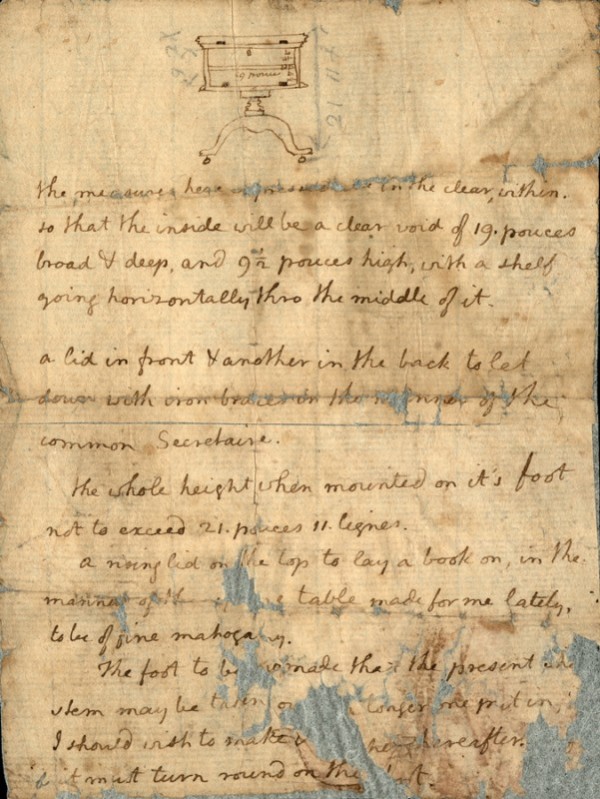 19 pouces
21 p 11 l
the measures here expressed in the clear, within.
so that the inside will be a clear void of 19. pouces
broad & deep, and 9 1/2 pouces high, with a shelf
going horizontally thro the middle of it.
a lid in front & another in the back to let
down with iron braces in the manner of the
common Secretaire.
the whole height when mounted on it's foot
not to exceed 21. pouces 11. lignes.
a rising lid on the top to lay a book on, in the
manner of the table made for me lately,
to be of fine mahogany.
The foot to be so made that the present
stem may be taken longer one put in,
I should wish to make hereafter.
it must turn round on the foot.